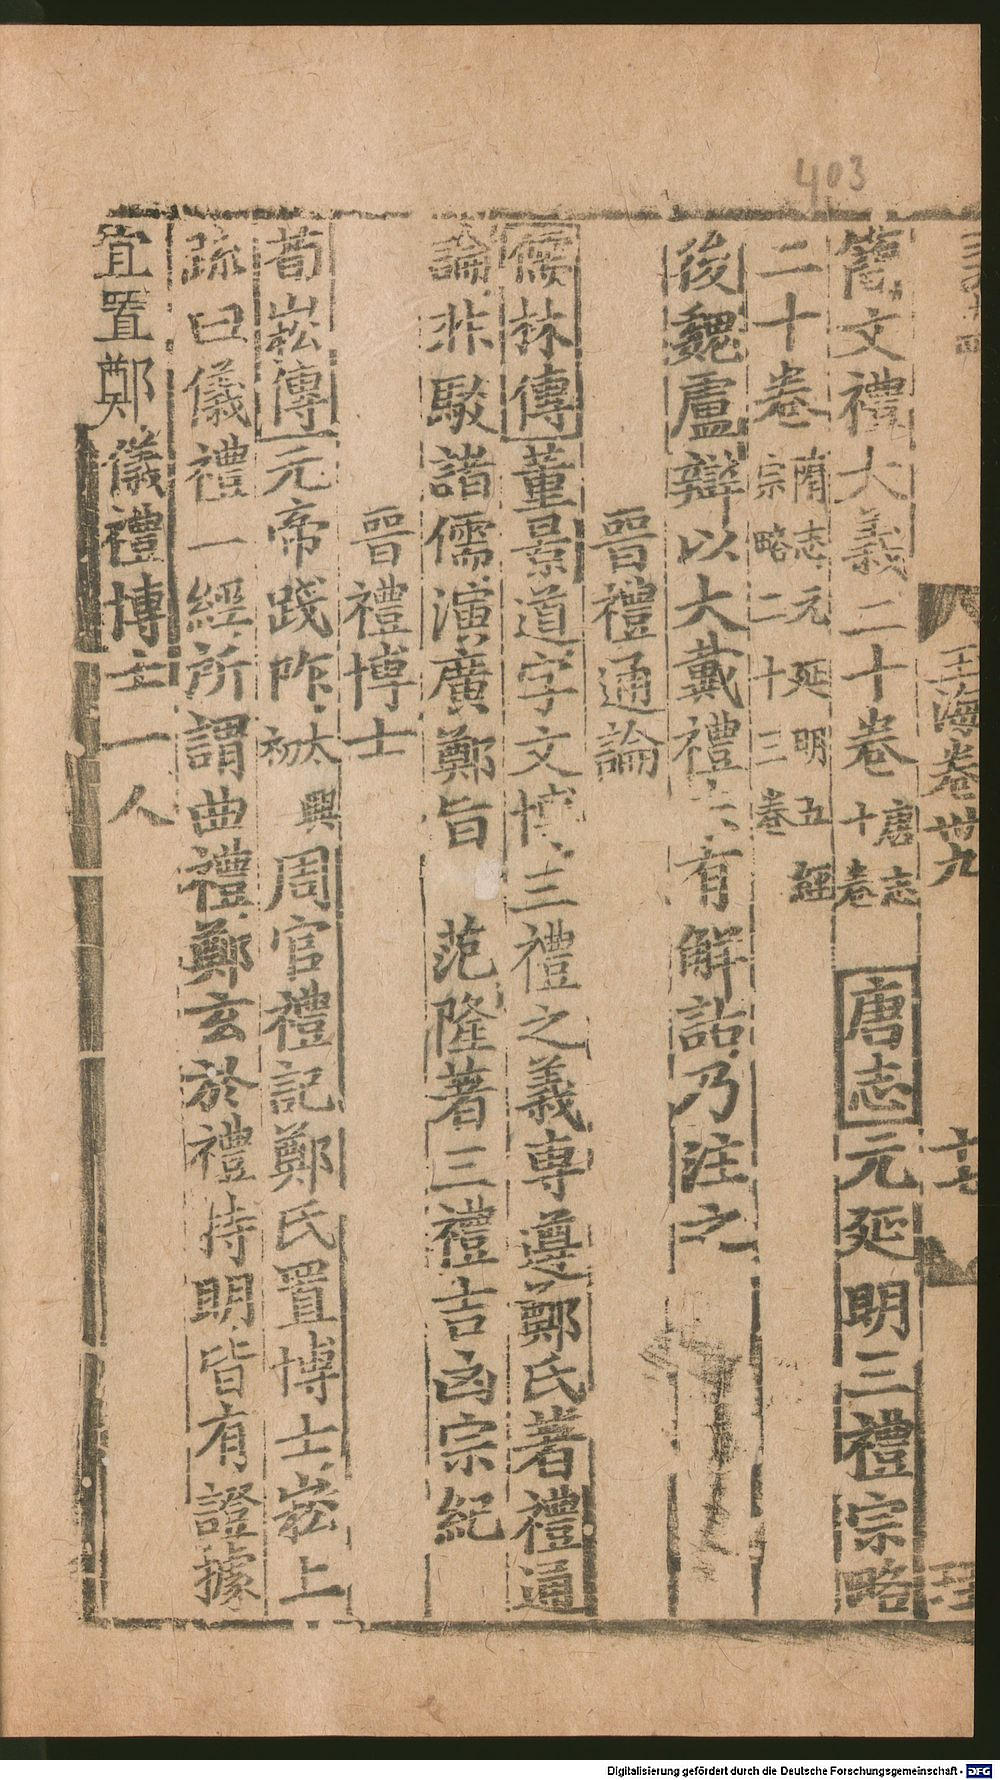 403
玉海卷卅九
十七
簡文禮大義二十卷唐志十卷 唐志元延明三禮宗略
二十卷隋志元延明五經宗略二十三卷
後魏盧辯以大戴禮未有解詁乃注之
晉禮通論
儒林傳董景道字文博三禮之義專遵鄭氏著禮通
論非駁諸儒演廣鄭旨 范隆著三禮吉凶宗紀
晉禮博士
荀崧傳元帝踐阼太興初周官禮記鄭氏置博士崧上
疏曰儀禮一經所謂曲禮鄭玄於禮特明皆有證據
宜置鄭儀禮博士一人
Digitalisierung gefördert durch die Deutsche Forschungsgemeinschaft - DFG